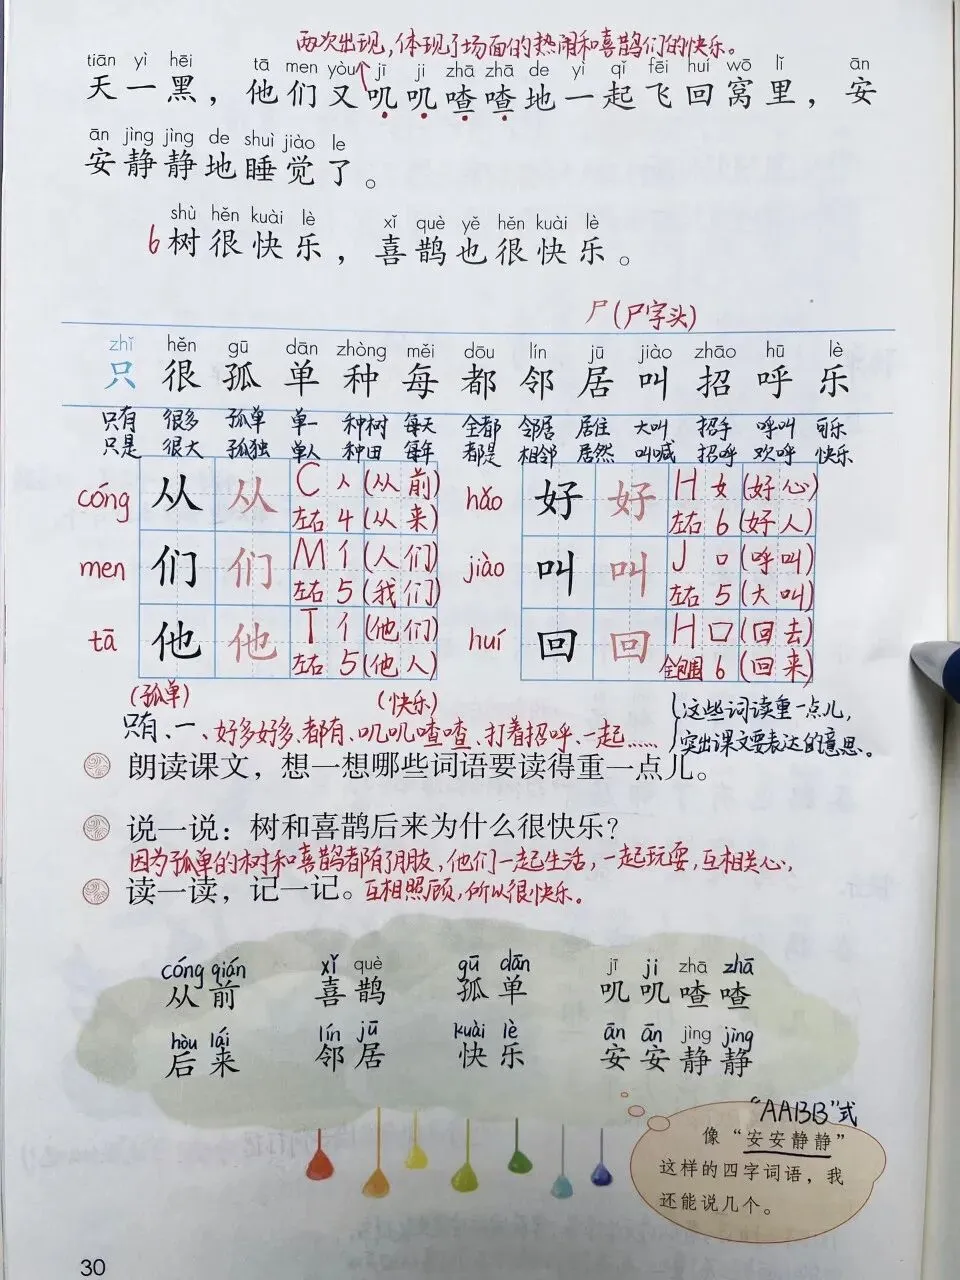 两次出现，体现了场面的热闹和喜鹊们的快乐。
tiān yì hēi tā men yòu jī ji zhā zhā de yì qǐ fēi huí wō lǐ ān
天一黑，他们又叽叽喳喳地一起飞回窝里，安
ān jìng jìng de shuì jiào le
安静静地睡觉了。
shù hěn kuài lè xǐ què yě hěn kuài lè
6树很快乐，喜鹊也很快乐。
尸(尸字头)
zhǐ hěn gū dān zhòng měi dōu lín jū jiào zhāo hū lè
只很孤单种每都邻居叫招呼乐
只有 很多 孤单 单一 种树 每天 全都 邻居 居住 大叫 招手 呼叫 可乐
只是 很大 孤独 单人 种田 每年 都是 相邻 居然 叫喊 招呼 欢呼 快乐
cóng 从 从 C 人 (从前) hǎo 好 好 H 女 (好心)
左右 4 (从来) 左右 6 (好人)
men 们 们 M 亻 (人们) jiào 叫 叫 J 口 (呼叫)
左右 5 (我们) 左右 5 (大叫)
tā 他 他 T 亻 (他们) huí 回 回 H 口 (回去)
左右 5 (他人) 全包围 6 (回来)
(孤单) (快乐) 这些词读重一点儿，
只有、一、好多好多、都有、叽叽喳喳、打着招呼、一起…… 突出课文要表达的意思。
朗读课文，想一想哪些词语要读得重一点儿。
说一说：树和喜鹊后来为什么很快乐？
因为孤单的树和喜鹊都有了朋友，他们一起生活，一起玩耍，互相关心，
读一读，记一记。互相照顾，所以很快乐。
cóng qián xǐ què gū dān jī ji zhā zhā
从前 喜鹊 孤单 叽叽喳喳
hòu lái lín jū kuài lè ān ān jìng jìng
后来 邻居 快乐 安安静静
“AABB”式
像“安安静静”
这样的四字词语，我
还能说几个。
30